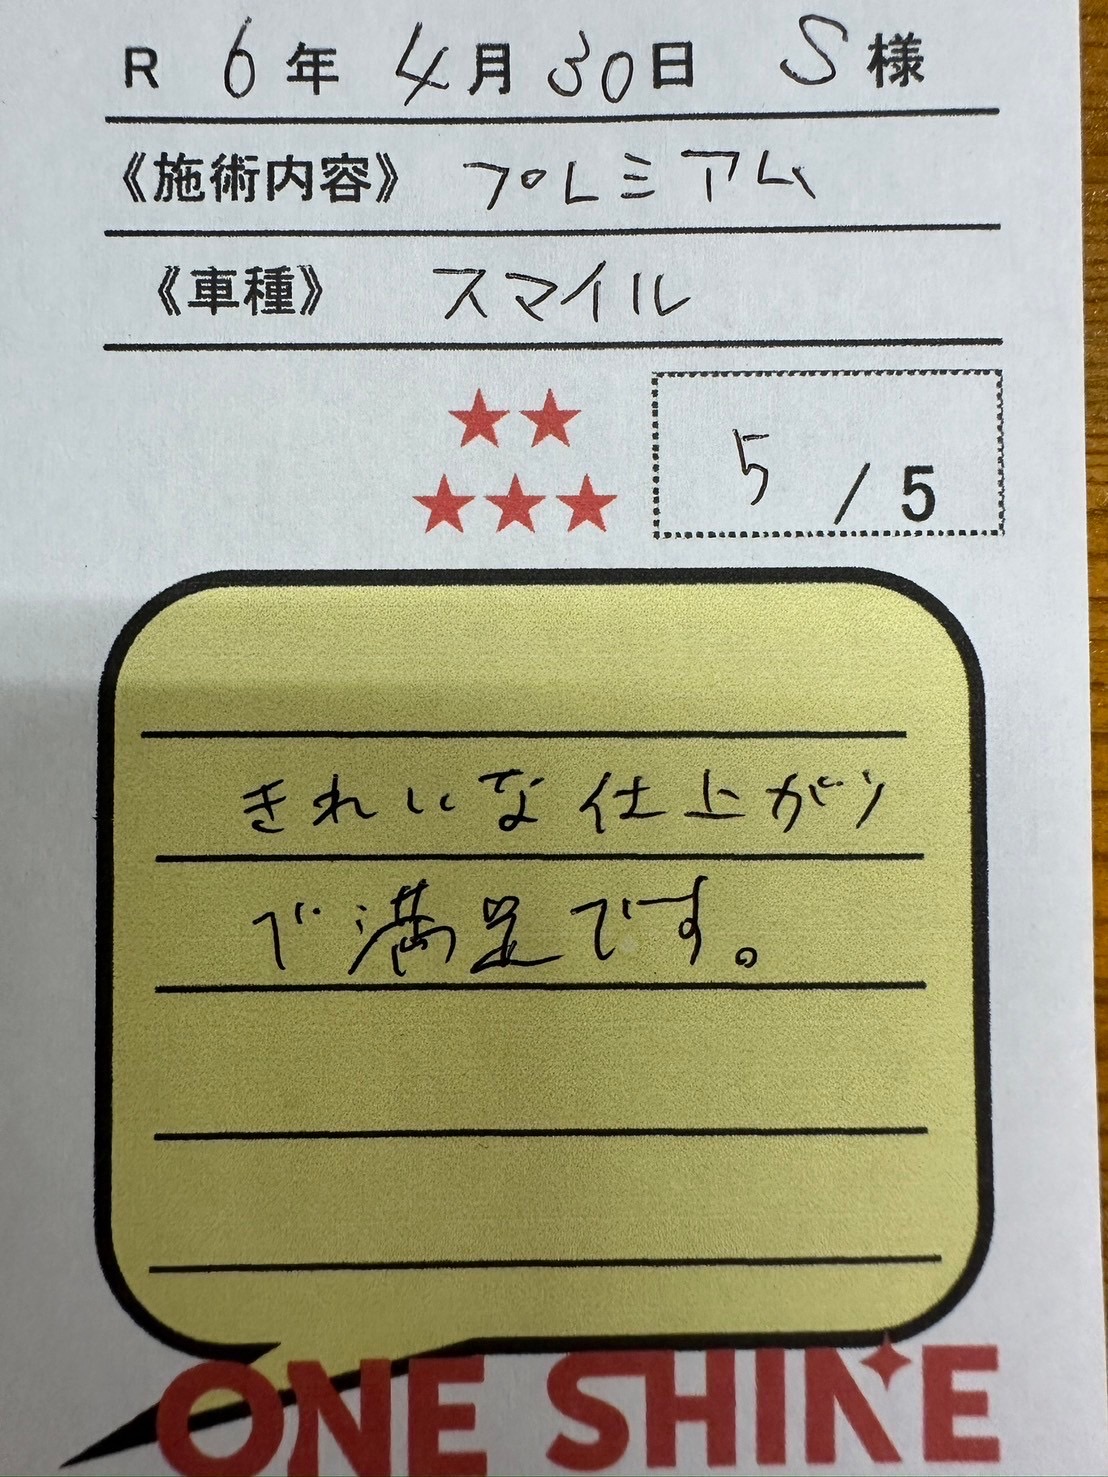 R 6年 4月30日 S様
《施術内容》 プレミアム
《車種》 スマイル
★★
★★★
5 / 5
きれいな仕上がり
で満足です。
ONE SHINE